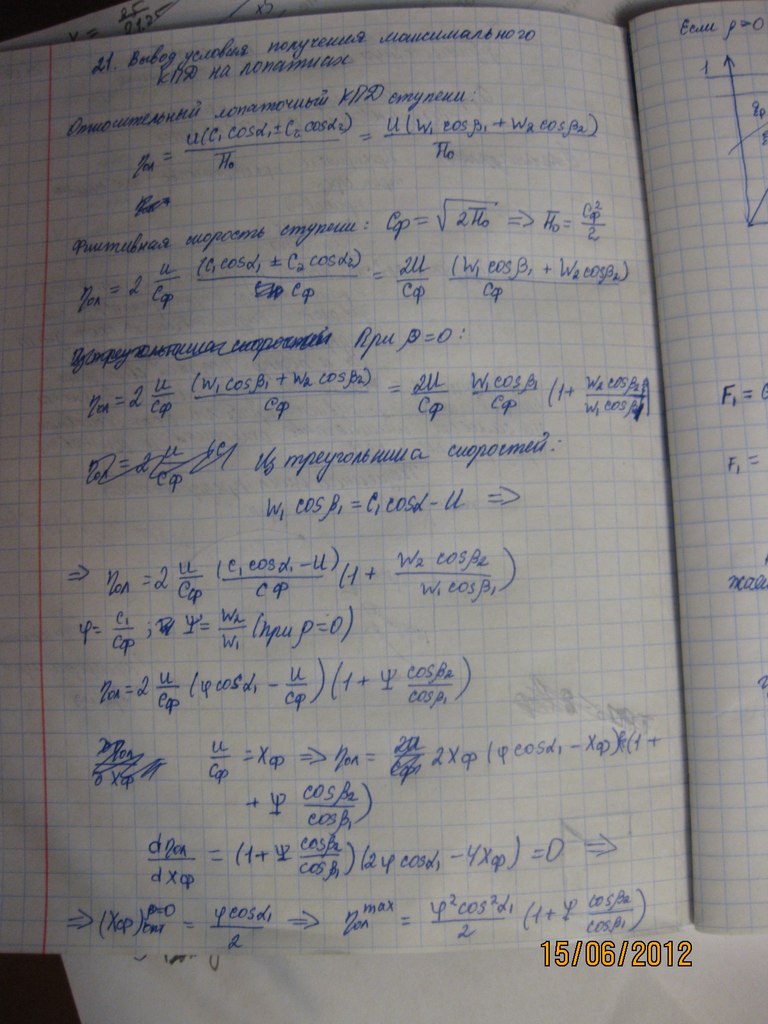 21. Вывод условия получения максимального
КПД на лопатках
Относительный лопаточный КПД ступени:
ηол = u(c₁cosα₁ ± c₂cosα₂)/H̄₀ = u(w₁cosβ₁ + w₂cosβ₂)/H̄₀
Фиктивная скорость ступени: Cф = √(2H̄₀) ⇒ H̄₀ = Cф²/2
ηол = 2 u/Cф (c₁cosα₁ ± c₂cosα₂)/Cф = 2u/Cф (w₁cosβ₁ + w₂cosβ₂)/Cф
При ρ=0:
ηол = 2 u/Cф (w₁cosβ₁ + w₂cosβ₂)/Cф = 2u/Cф w₁cosβ₁/Cф (1 + w₂cosβ₂/w₁cosβ₁)
Из треугольника скоростей:
w₁cosβ₁ = c₁cosα - u ⇒
⇒ ηол = 2 u/Cф (c₁cosα₁ - u)/Cф (1 + w₂cosβ₂/w₁cosβ₁)
φ = c₁/Cф; Ψ = w₂/w₁ (при ρ=0)
ηол = 2 u/Cф (φcosα₁ - u/Cф)(1 + Ψ cosβ₂/cosβ₁)
u/Cф = Xф ⇒ ηол = 2Xф (φcosα₁ - Xф)(1 +
+ Ψ cosβ₂/cosβ₁)
dηол/dXф = (1 + Ψ cosβ₂/cosβ₁)(2φcosα₁ - 4Xф) = 0 ⇒
⇒ (Xф)опт^ρ=0 = φcosα₁/2 ⇒ ηол^max = φ²cos²α₁/2 (1 + Ψ cosβ₂/cosβ₁)
Если ρ=0
1
F₁ =
F₁ =
15/06/2012